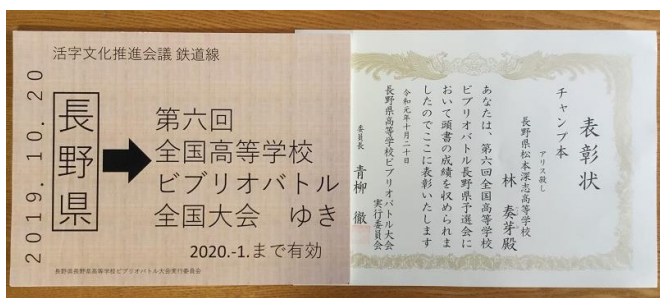 活字文化推進会議 鉄道線
2019.10.20
長野県
第六回
全国高等学校
ビブリオバトル
全国大会 ゆき
2020.-1.まで有効
長野県長野県高等学校ビブリオバトル大会実行委員会
表彰状
チャンプ本
アリス殺し
長野県松本深志高等学校
林 奏芽殿
あなたは、第六回全国高等学校
ビブリオバトル長野県予選会に
おいて頭書の成績を収められま
したのでここに表彰いたします
令和元年十月二十日
長野県高等学校ビブリオバトル大会
実行委員会
委員長 青柳 徹